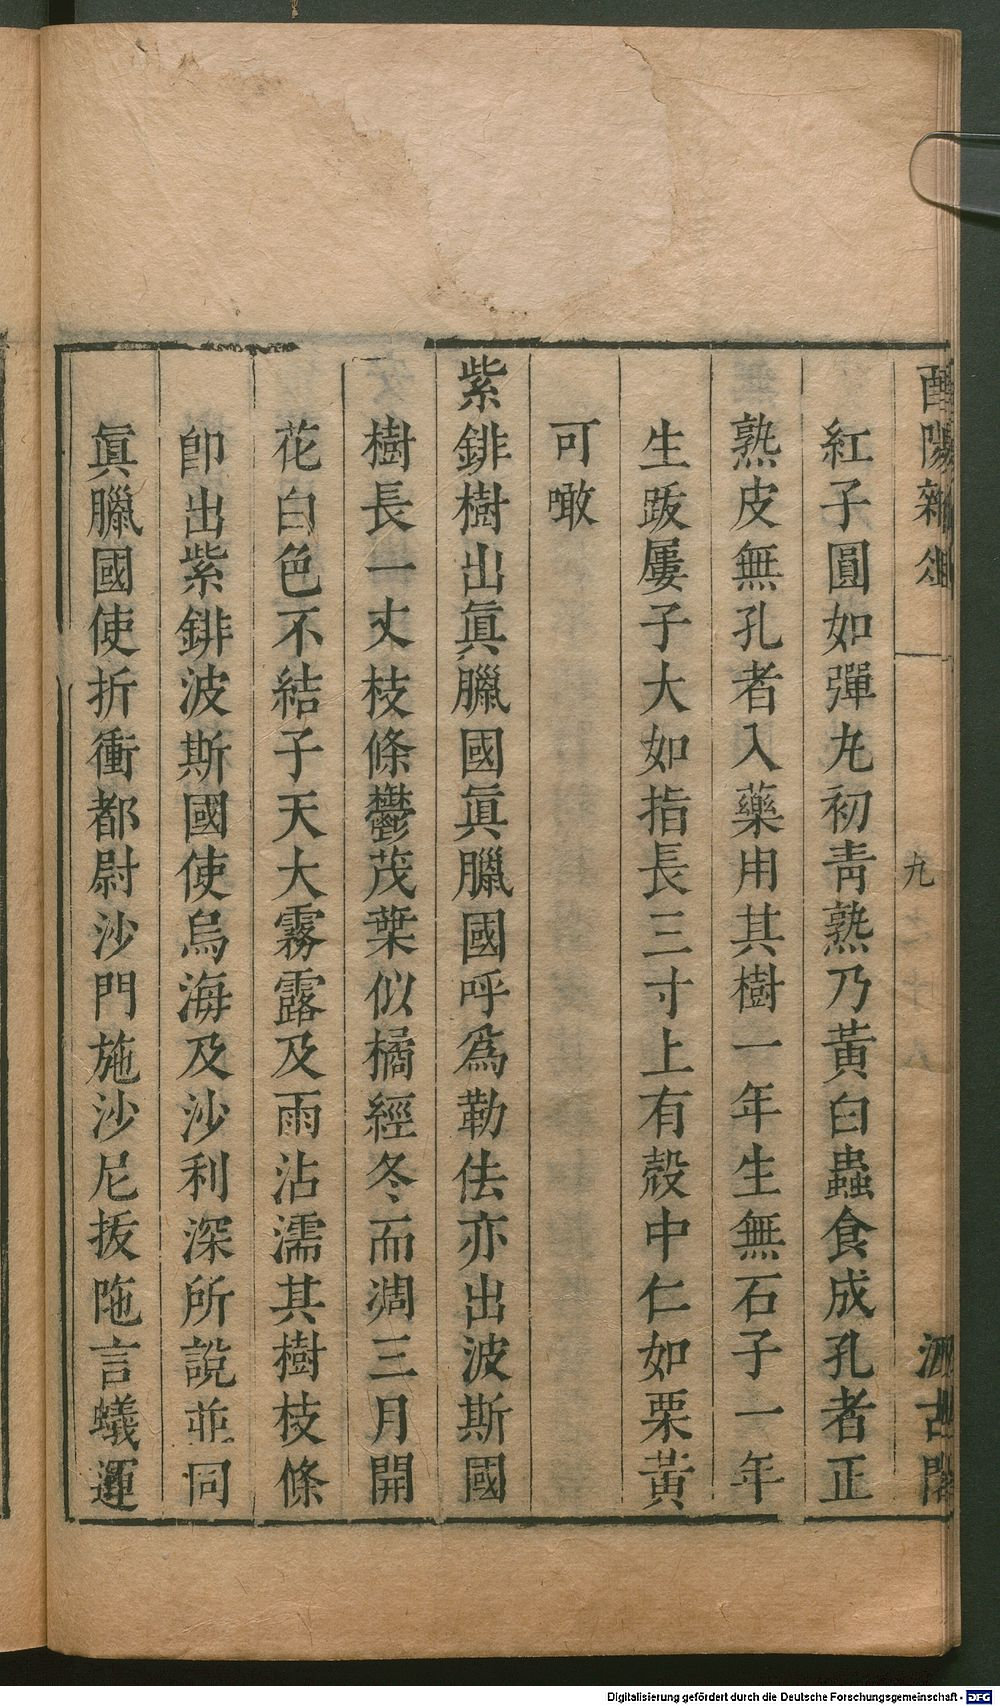 酉陽雜俎
九
汲古閣
紅子圓如彈丸初青熟乃黃白蟲食成孔者正
熟皮無孔者入藥用其樹一年生無石子一年
生跋屢子大如指長三寸上有殼中仁如栗黃
可噉
紫鉾樹出眞臘國眞臘國呼爲勒佉亦出波斯國
樹長一丈枝條鬱茂葉似橘經冬而凋三月開
花白色不結子天大霧露及雨沾濡其樹枝條
卽出紫鉾波斯國使烏海及沙利深所說並同
眞臘國使折衝都尉沙門施沙尼拔陁言蟻運
Digitalisierung gefördert durch die Deutsche Forschungsgemeinschaft - DFG